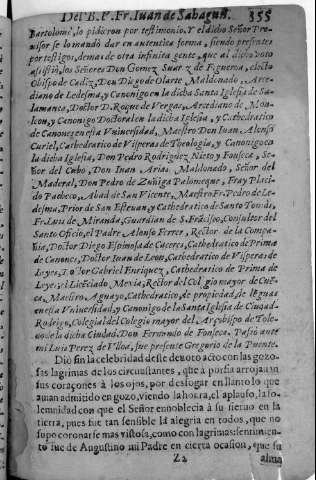 Del B. P. Fr. Iuan de Sahagun. 355
Bartolome, lo pidieron por testimonio, Y el dicho Señor Pro-
uisor se lo mandò dar en autentica forma, siendo presentes
por testigos, demas de otra infinita gente, que al dicho voto
assistiò, los Señores Don Gomez Suarez de Figueroa, electo
Obispo de Cadiz, Don Diego de Olarte, Maldonado, Arce-
diano de Ledesma, y Canonigo en la dicha Santa Iglesia de Sa-
lamanca, Doctor D. Roque de Vergas, Arcediano de Mon-
leon, y Canonigo Doctoral en la dicha Iglesia, y Cathedratico
de Canones en esta Vniuersidad, Maestro Don Iuan, Alonso
Curiel, Cathedratico de Visperas de Theologia, y Canonigo en
la dicha Iglesia, Don Pedro Rodriguez Nieto y Fonseca, Se-
ñor del Cubo, Don Iuan Arias Maldonado, Señor del
Maderal, Don Pedro de Zuñiga Palomeque, Fray Placi-
do Pacheco, Abad de San Vicente, Maestro Fr. Pedro de Le-
desma, Prior de San Esteuan, y Cathedratico de Santo Tomàs,
Fr. Luis de Miranda, Guardian de S. Frãcisco, Consultor del
Santo Oficio, el Padre Alonso Ferrer, Rector de la Compa-
ñia, Doctor Diego Espinosa de Caceres, Cathedratico de Prima
de Canones, Doctor Iuan de Leon, Cathedratico de Visperas de
Leyes, Doctor Gabriel Enriquez, Cathedratico de Prima de
Leyes, el Licẽciado Mexia, Rector del Colegio mayor de Cuẽ-
ca, Maestro Aguayo, Cathedratico, de propiedad, de lẽguas
en esta Vniuersidad, y Canonigo de la Santa Iglesia de Ciudad-
Rodrigo, Colegial del Colegio mayor del Arçobispo de Tole-
do de la dicha Ciudad, Don Fernando de Fonseca. Passò ante
mi Luis Perez de Vlloa, fue presente Gregorio de la Puente.
Diò fin la celebridad deste deuoto acto con las gozo-
sas lagrimas de los circunstantes, que à porfia arrojauan
sus coraçones à los ojos, por desfogar en llanto lo que
auian admitido en gozo, viendo la hõra, el aplauso, la so-
lemnidad con que el Señor ennoblecia à su sieruo en la
tierra, pues fue tan sensible la alegria en todos, que no
supo coronarse mas vistosa, como con lagrimas: sentimien-
to fue de Augustino mi Padre en cierta ocasion, que su
Z2 alma